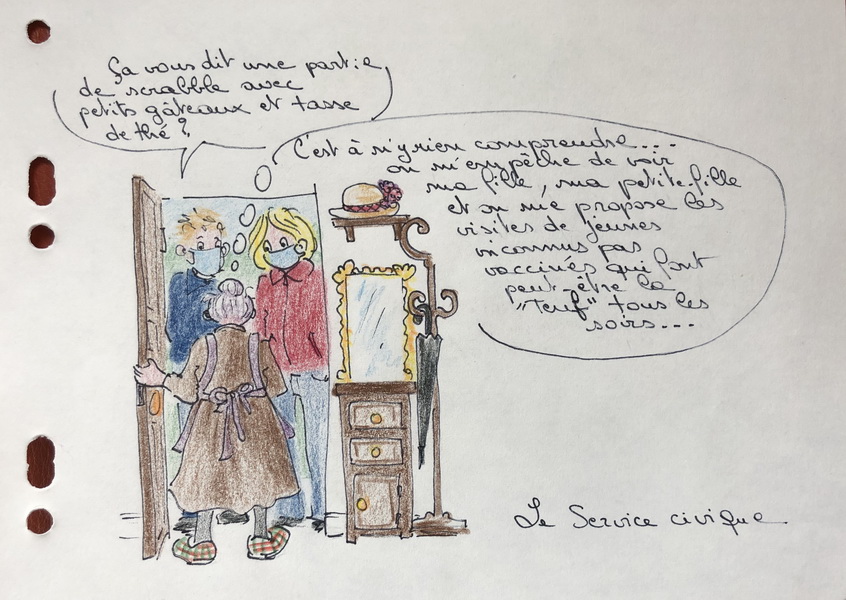 Ça vous dit une partie
de scrabble avec
petits gâteaux et tasse
de thé ?
C'est à n'y rien comprendre....
on m'empêche de voir
ma fille, ma petite-fille
et on me propose les
visites de jeunes
inconnus pas
vaccinés qui font
peut-être la
"Teuf" tous les
soirs...
Le Service civique